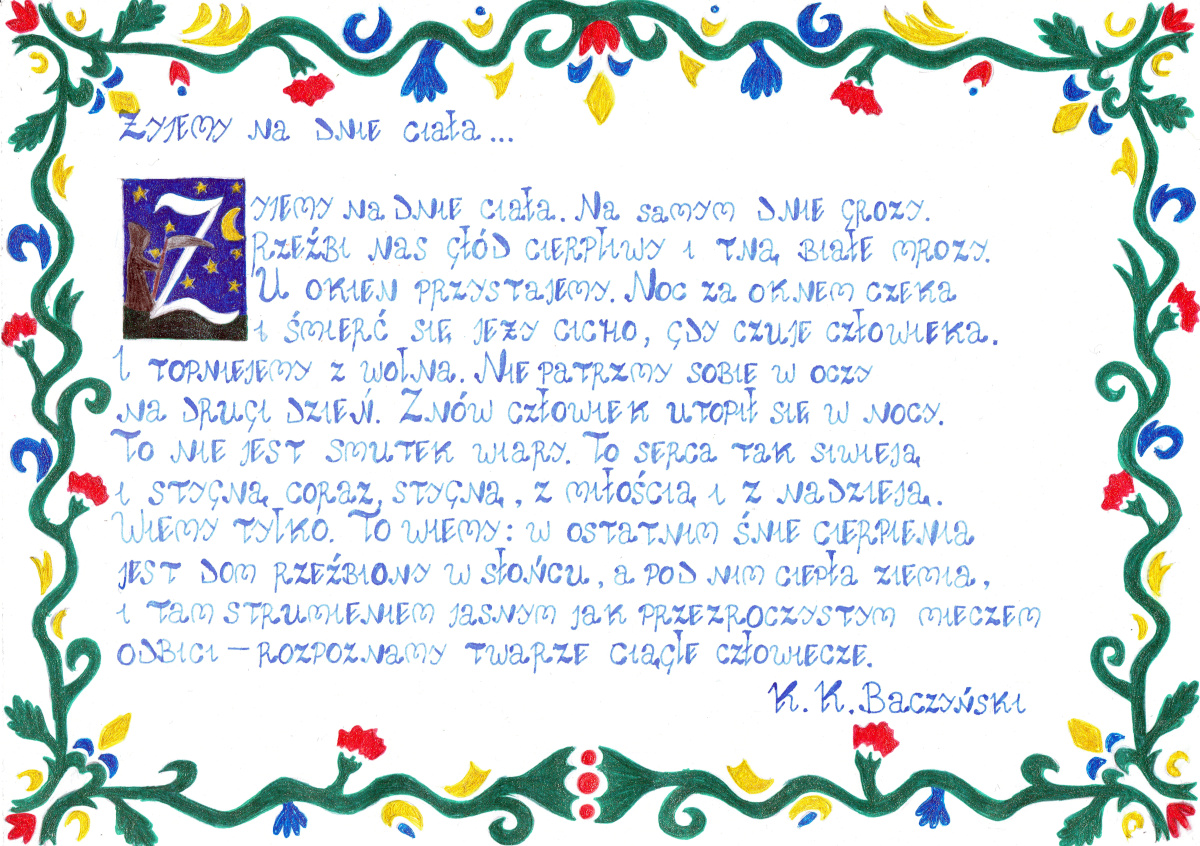 Żyjemy na dnie ciała...
Żyjemy na dnie ciała. Na samym dnie grozy.
Rzeźbi nas głód cierpliwy i tną białe mrozy.
U okien przystajemy. Noc za oknem czeka
i śmierć się jeży cicho, gdy czuje człowieka.
I topniejemy z wolna. Nie patrzmy sobie w oczy
na drugi dzień. Znów człowiek utopił się w nocy.
To nie jest smutek wiary. To serca tak siwieją
i stygną coraz, stygną, z miłością i z nadzieją.
Wiemy tylko. To wiemy: w ostatnim śnie cierpienia
jest dom rzeźbiony w słońcu, a pod nim ciepła ziemia,
i tam strumieniem jasnym jak przezroczystym mieczem
odbici – rozpoznamy twarze ciągle człowiecze.
K. K. Baczyński